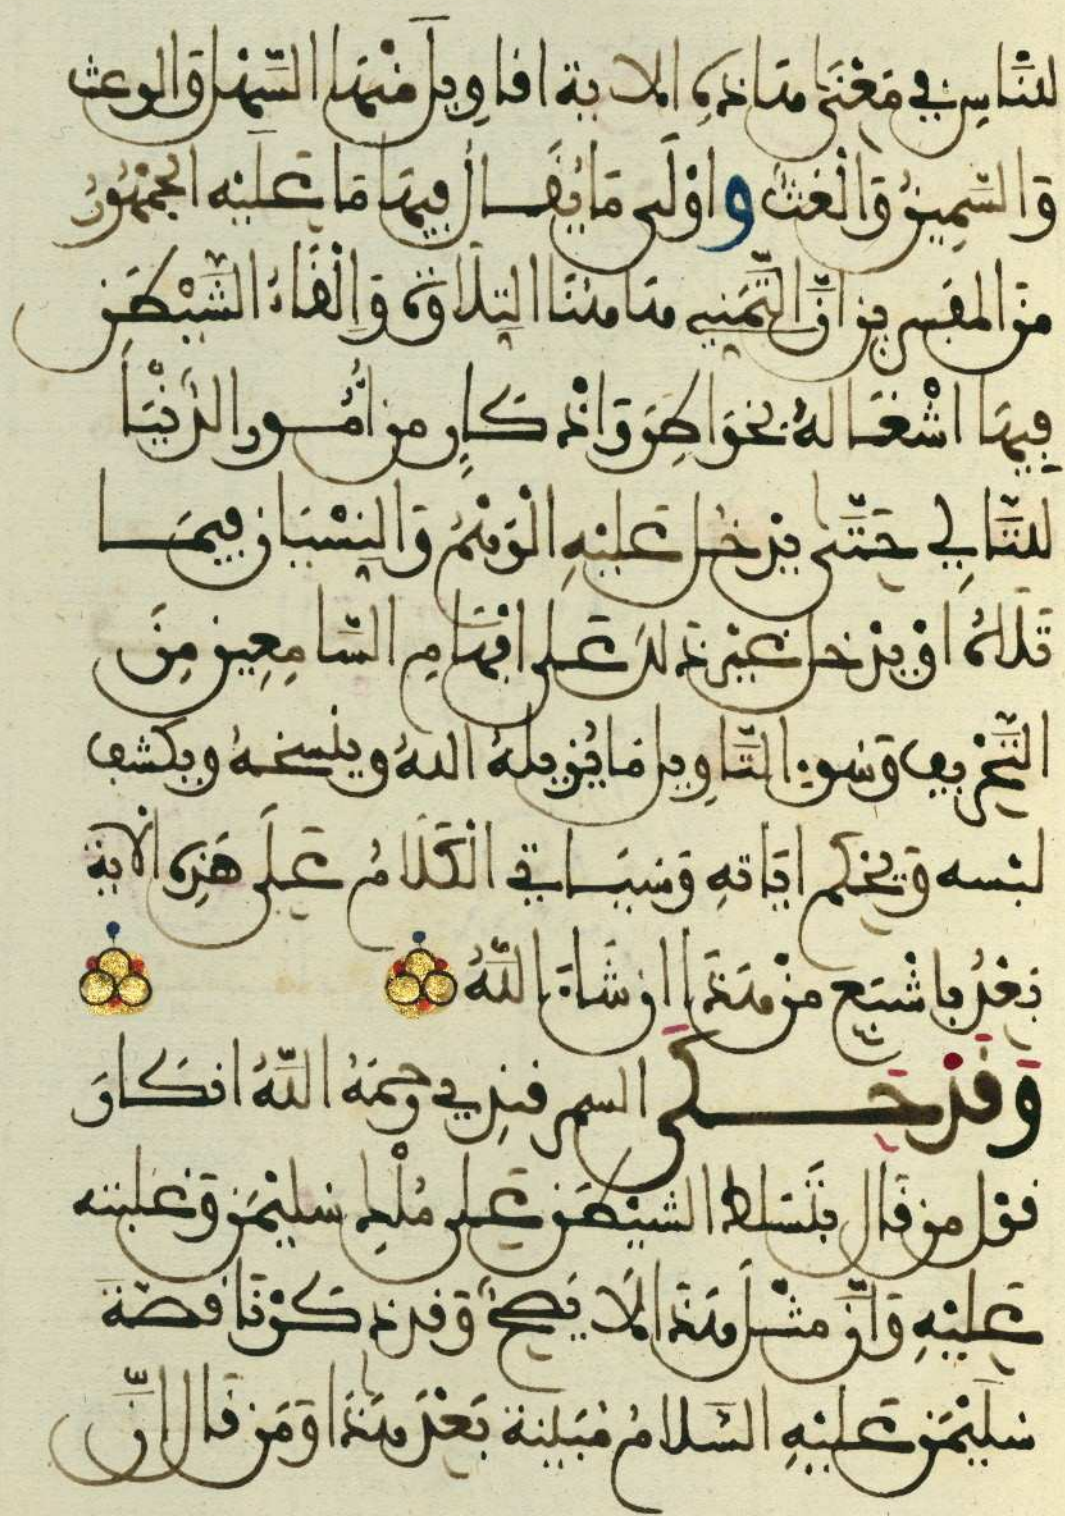 للناس في معنى هذه الاية افاويل منها السهل والوعث
والسمين والغث واولى ما يقال فيها ما عليه الجمهور
من المفسرين ان التمني هاهنا التلاوة والقاء الشيطن
فيها اشغاله بخواطر واذكار من امور الدنيا
للتالي حتى يدخل عليه الوهم والنسيان فيما
تلاه او يدخل غير ذلك على افهام السامعين من
التحريف وسوء التاويل ما يزيله الله وينسخه ويكشف
لبسه ويحكم اياته وسياتي الكلام على هذه الاية
بعد باشبع من هذا ان شاء الله
وقد حكى السمرقندي رحمه الله انكار
قول من قال بتسلط الشيطن على ملك سليمن وغلبته
عليه وان مثل هذا لا يصح وقد ذكرنا قصة
سليمن عليه السلام مبينة بعد هذا ومن قال ان